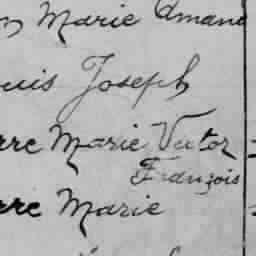 n Marie Amand
uis Joseph
rre Marie Victor
François
rre Marie